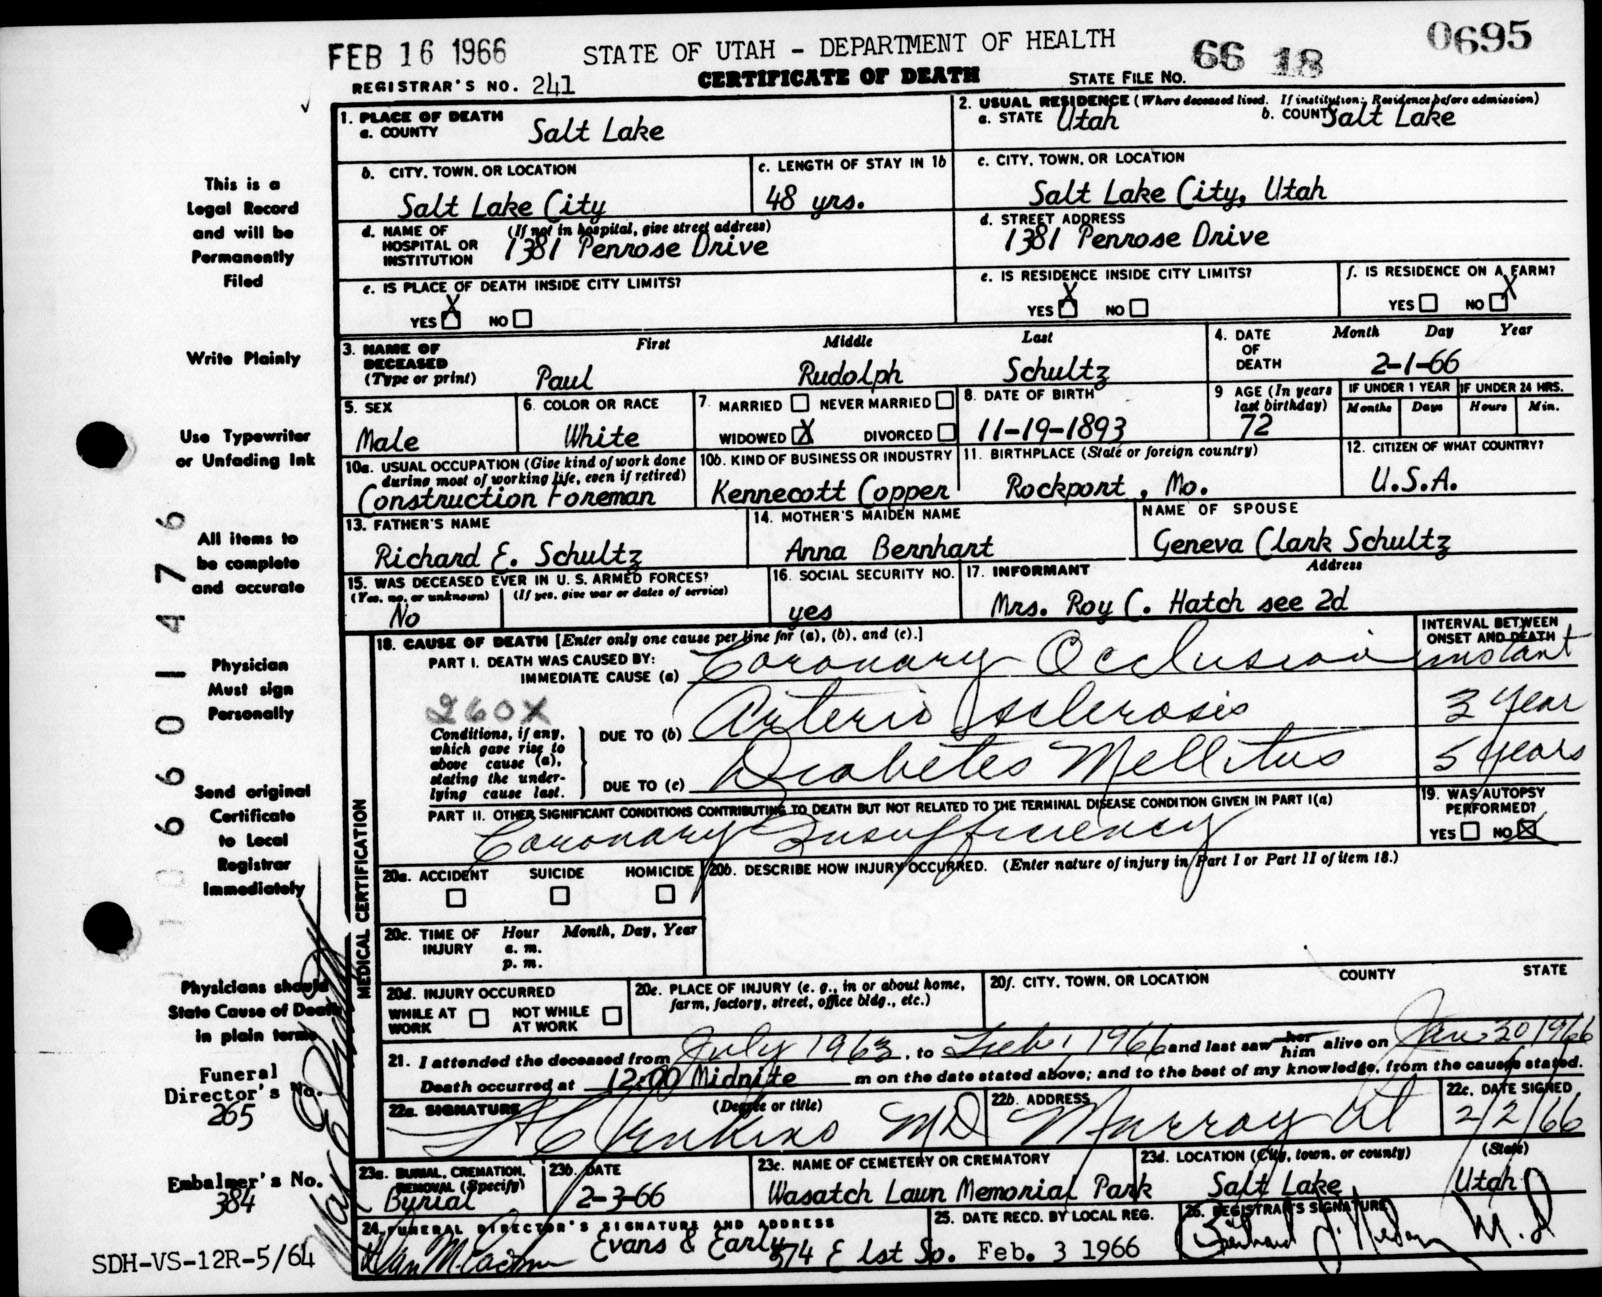 FEB 16 1966
STATE OF UTAH - DEPARTMENT OF HEALTH
66 18
0695
REGISTRAR'S NO. 241
CERTIFICATE OF DEATH
STATE FILE NO.
1. PLACE OF DEATH
a. COUNTY Salt Lake
2. USUAL RESIDENCE (Where deceased lived. If institution: Residence before admission)
a. STATE Utah
b. COUNTY Salt Lake
b. CITY, TOWN, OR LOCATION
Salt Lake City
c. LENGTH OF STAY IN 1b
48 yrs.
c. CITY, TOWN, OR LOCATION
Salt Lake City, Utah
d. NAME OF HOSPITAL OR INSTITUTION (If not in hospital, give street address)
1381 Penrose Drive
d. STREET ADDRESS
1381 Penrose Drive
e. IS PLACE OF DEATH INSIDE CITY LIMITS?
YES X NO
e. IS RESIDENCE INSIDE CITY LIMITS?
YES X NO
f. IS RESIDENCE ON A FARM?
YES NO X
3. NAME OF DECEASED (Type or print)
First Middle Last
Paul Rudolph Schultz
4. DATE OF DEATH
Month Day Year
2-1-66
5. SEX
Male
6. COLOR OR RACE
White
7. MARRIED NEVER MARRIED
WIDOWED X DIVORCED
8. DATE OF BIRTH
11-19-1893
9 AGE (In years last birthday)
72
IF UNDER 1 YEAR
Months Days
IF UNDER 24 HRS.
Hours Min.
10a. USUAL OCCUPATION (Give kind of work done during most of working life, even if retired)
Construction Foreman
10b. KIND OF BUSINESS OR INDUSTRY
Kennecott Copper
11. BIRTHPLACE (State or foreign country)
Rockport, Mo.
12. CITIZEN OF WHAT COUNTRY?
U.S.A.
13. FATHER'S NAME
Richard E. Schultz
14. MOTHER'S MAIDEN NAME
Anna Bernhart
NAME OF SPOUSE
Geneva Clark Schultz
15. WAS DECEASED EVER IN U. S. ARMED FORCES?
(Yes, no, or unknown) (If yes, give war or dates of service)
No
16. SOCIAL SECURITY NO.
yes
17. INFORMANT Address
Mrs. Roy C. Hatch see 2d
MEDICAL CERTIFICATION
18. CAUSE OF DEATH [Enter only one cause per line for (a), (b), and (c).]
INTERVAL BETWEEN ONSET AND DEATH
PART I. DEATH WAS CAUSED BY:
IMMEDIATE CAUSE (a) Coronary Occlusion instant
260X
Conditions, if any, which gave rise to above cause (a), stating the underlying cause last.
DUE TO (b) Arterio sclerosis 3 year
DUE TO (c) Diabetes Mellitus 5 years
PART II. OTHER SIGNIFICANT CONDITIONS CONTRIBUTING TO DEATH BUT NOT RELATED TO THE TERMINAL DISEASE CONDITION GIVEN IN PART I(a)
Coronary Insufficiency
19. WAS AUTOPSY PERFORMED?
YES NO X
20a. ACCIDENT SUICIDE HOMICIDE
20b. DESCRIBE HOW INJURY OCCURRED. (Enter nature of injury in Part I or Part II of item 18.)
20c. TIME OF INJURY
Hour Month, Day, Year
a. m.
p. m.
20d. INJURY OCCURRED
WHILE AT WORK NOT WHILE AT WORK
20e. PLACE OF INJURY (e. g., in or about home, farm, factory, street, office bldg., etc.)
20f. CITY, TOWN, OR LOCATION COUNTY STATE
21. I attended the deceased from July 1963, to Feb. 1 1966 and last saw her him alive on Jan 30 1966
Death occurred at 12:00 Midnite m on the date stated above; and to the best of my knowledge, from the causes stated.
22a. SIGNATURE (Degree or title)
Jenkins MD
22b. ADDRESS
Murray Ut
22c. DATE SIGNED
2/2/66
23a. BURIAL, CREMATION, REMOVAL (Specify)
Burial
23b. DATE
2-3-66
23c. NAME OF CEMETERY OR CREMATORY
Wasatch Lawn Memorial Park
23d. LOCATION (City, town, or county) (State)
Salt Lake Utah
24. FUNERAL DIRECTOR'S SIGNATURE AND ADDRESS
Evans & Early 574 E 1st So.
25. DATE RECD. BY LOCAL REG.
Feb. 3 1966
26. REGISTRAR'S SIGNATURE
M.D
This is a
Legal Record
and will be
Permanently
Filed
Write Plainly
Use Typewriter
or Unfading Ink
All items to
be complete
and accurate
Physician
Must sign
Personally
Send original
Certificate
to Local
Registrar
Immediately
Physicians should
State Cause of Death
in plain terms
Funeral
Director's No.
265
Embalmer's No.
384
SDH-VS-12R-5/64
006601476